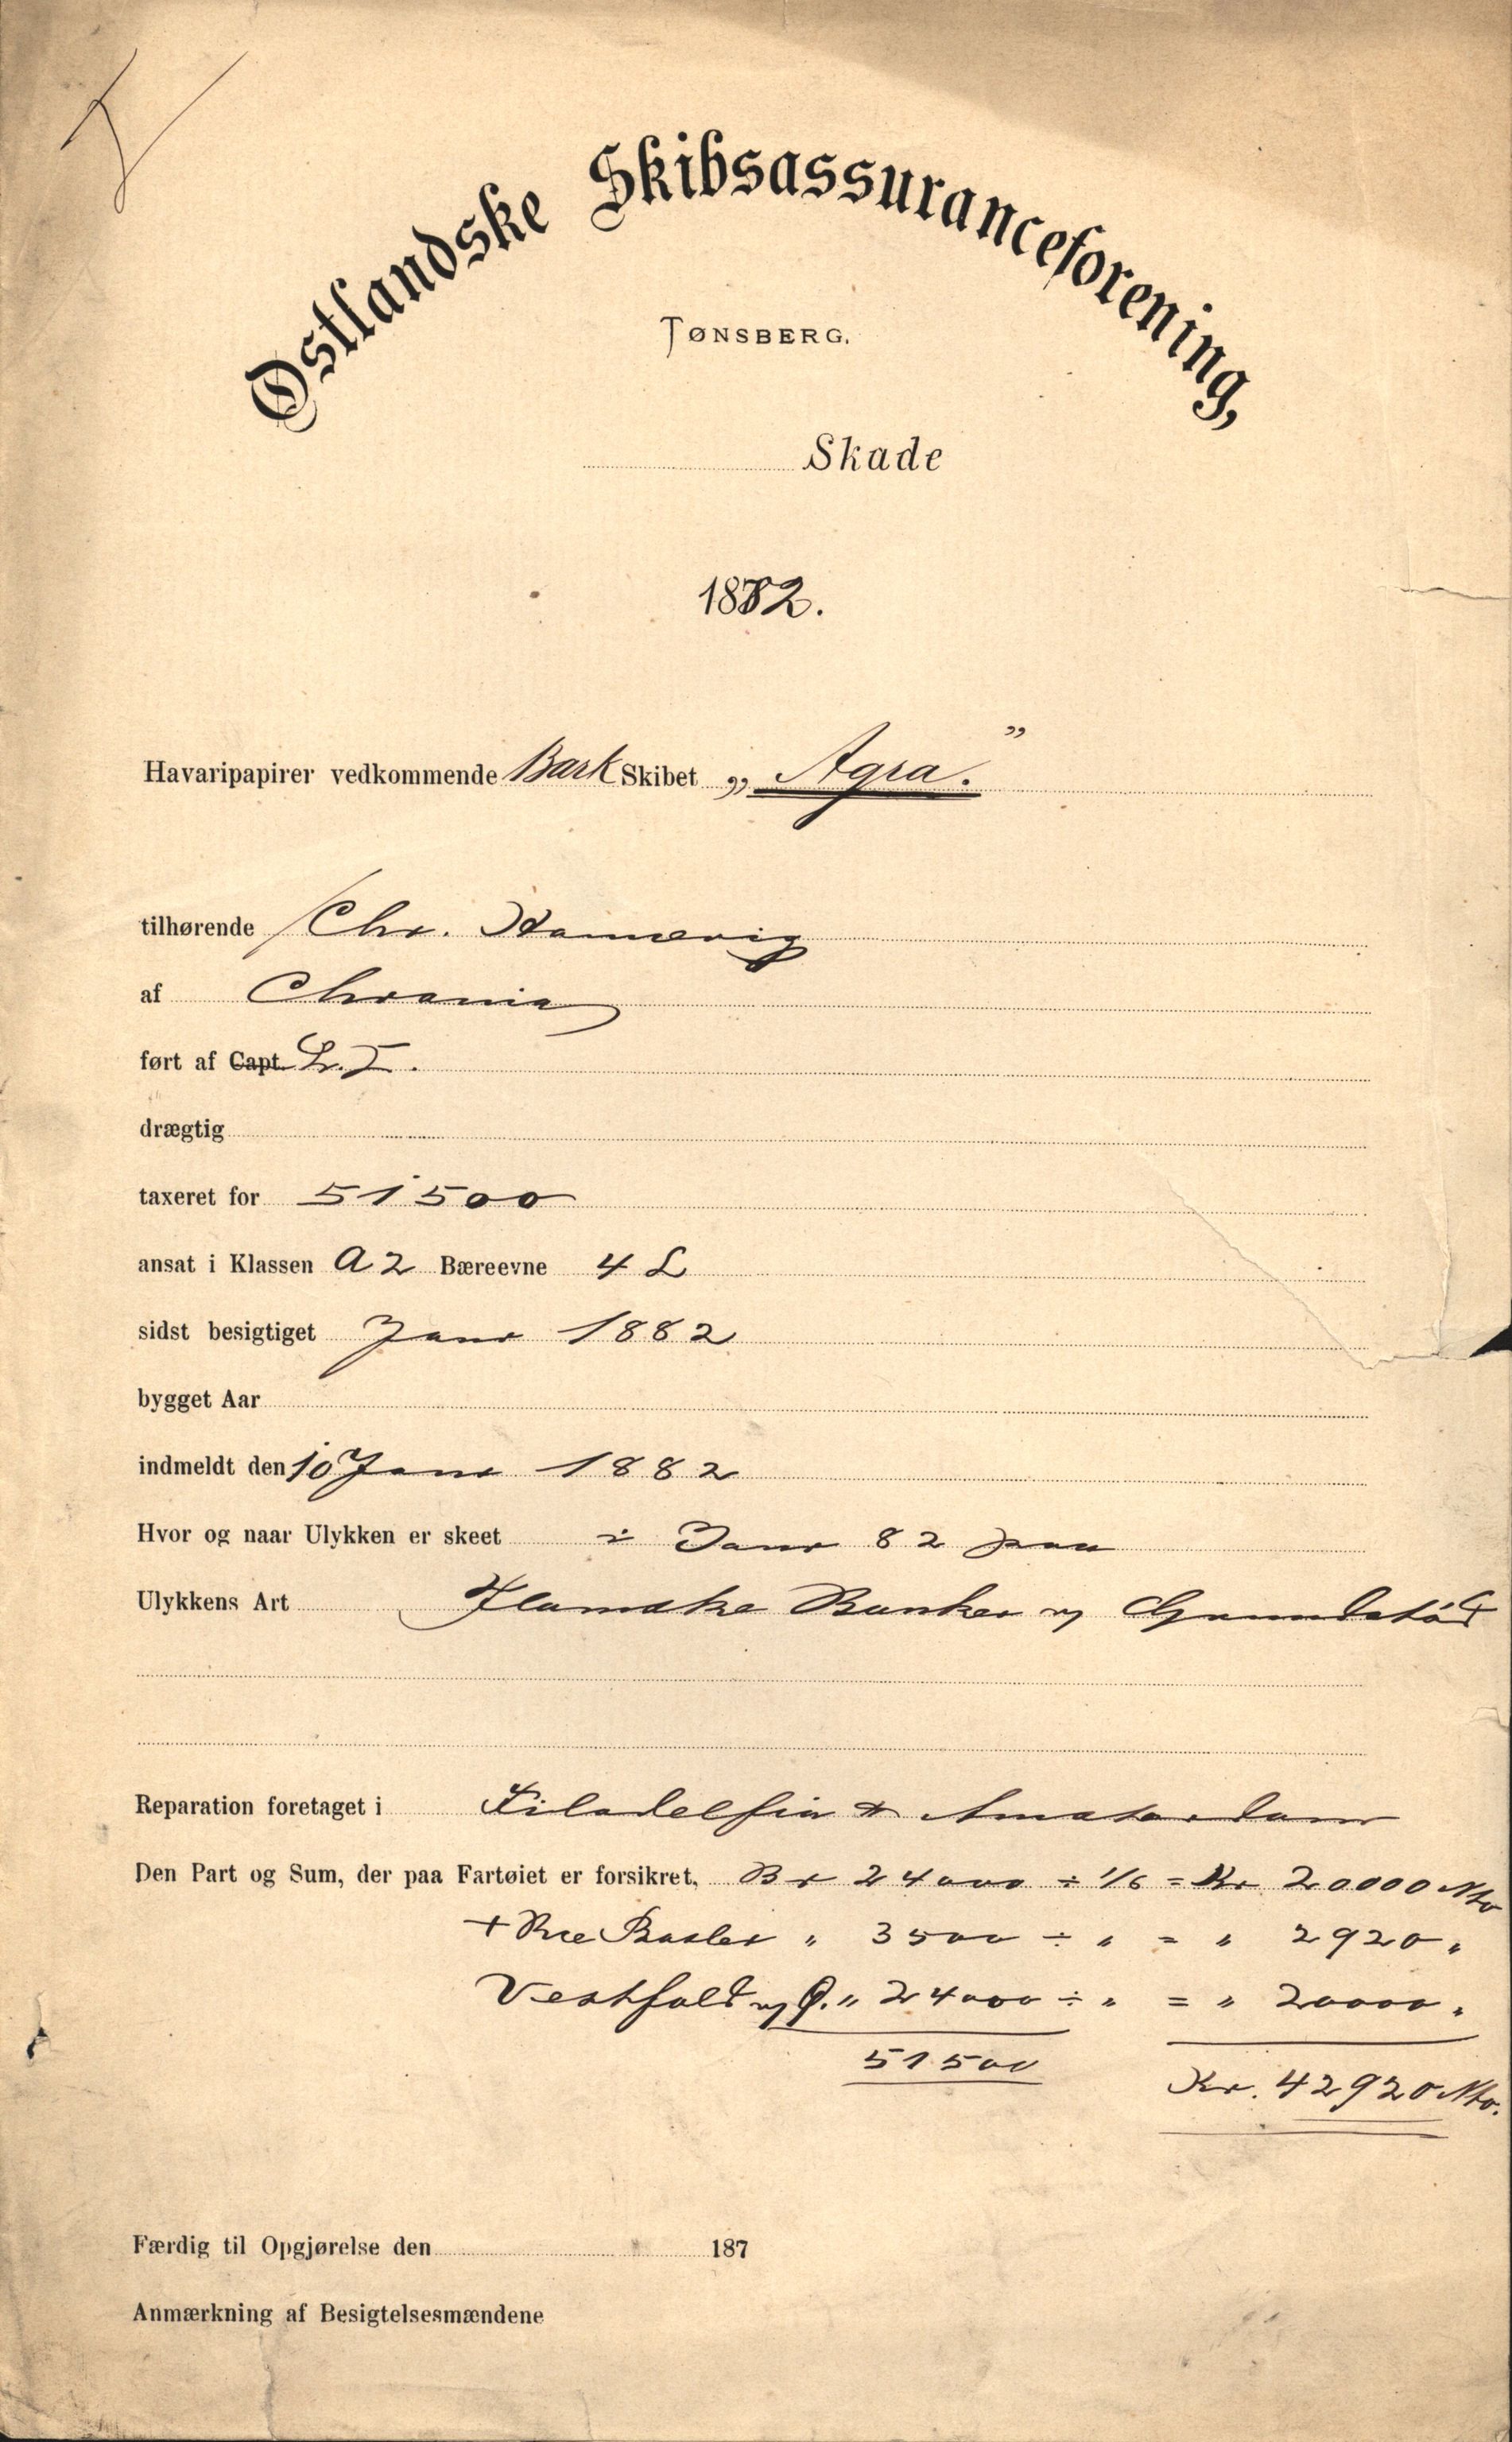 Østlandske Skibsassuranceforening,
TØNSBERG.
Skade
1882.
Havaripapirer vedkommende Bark Skibet „Agra."
tilhørende Chr. Hannevig
af Chrania
ført af Capt. L. T.
drægtig
taxeret for 51500
ansat i Klassen A2 Bæreevne 4 L
sidst besigtiget Janr 1882
bygget Aar
indmeldt den 10 Janr 1882
Hvor og naar Ulykken er skeet i Janr 82 paa
Ulykkens Art Flamske Banker og Grundstød
Reparation foretaget i Filadelfia & Amsterdam
Den Part og Sum, der paa Fartøiet er forsikret, Br 24000 ÷ 1/6 = Kr 20000 Nto
+ " 3500 ÷ " = " 2920 "
Vestfold og Ø. " 24000 ÷ " = " 20000 "
51500
Kr. 42920 Nto.
Færdig til Opgjørelse den 187
Anmærkning af Besigtelsesmændene